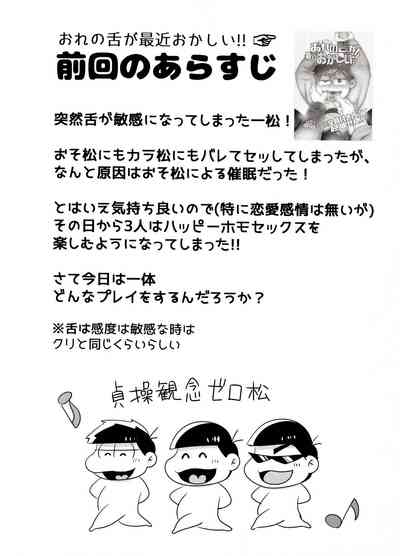 おれの舌が最近おかしい!! ☞
前回のあらすじ
おれの舌が
おかしい!!
突然舌が敏感になってしまった一松！
おそ松にもカラ松にもバレてセッしてしまったが、
なんと原因はおそ松による催眠だった！
とはいえ気持ち良いので(特に恋愛感情は無いが)
その日から3人はハッピーホモセックスを
楽しむようになってしまった!!
さて今日は一体
どんなプレイをするんだろうか？
※舌は感度は敏感な時は
クリと同じくらいらしい
貞操観念ゼロ松